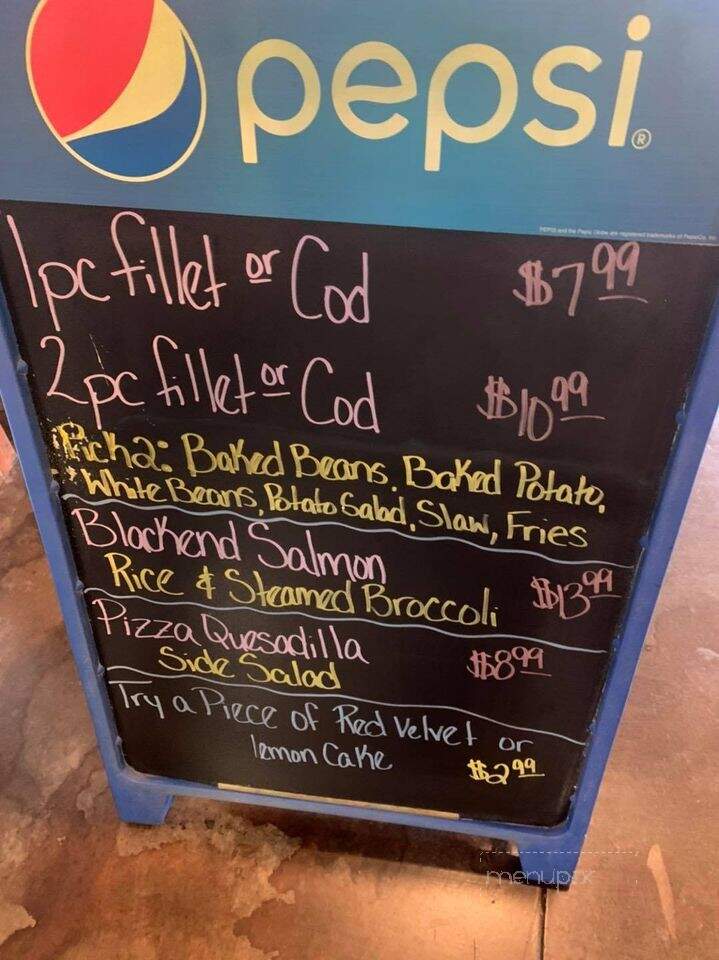 pepsi®
1pc fillet or Cod $7.99
2pc fillet or Cod $10.99
Pick 2: Baked Beans, Baked Potato,
White Beans, Potato Salad, Slaw, Fries
Blackend Salmon
Rice & Steamed Broccoli $13.99
Pizza Quesadilla
Side Salad $8.99
Try a Piece of Red Velvet or
lemon Cake $2.99
menupix